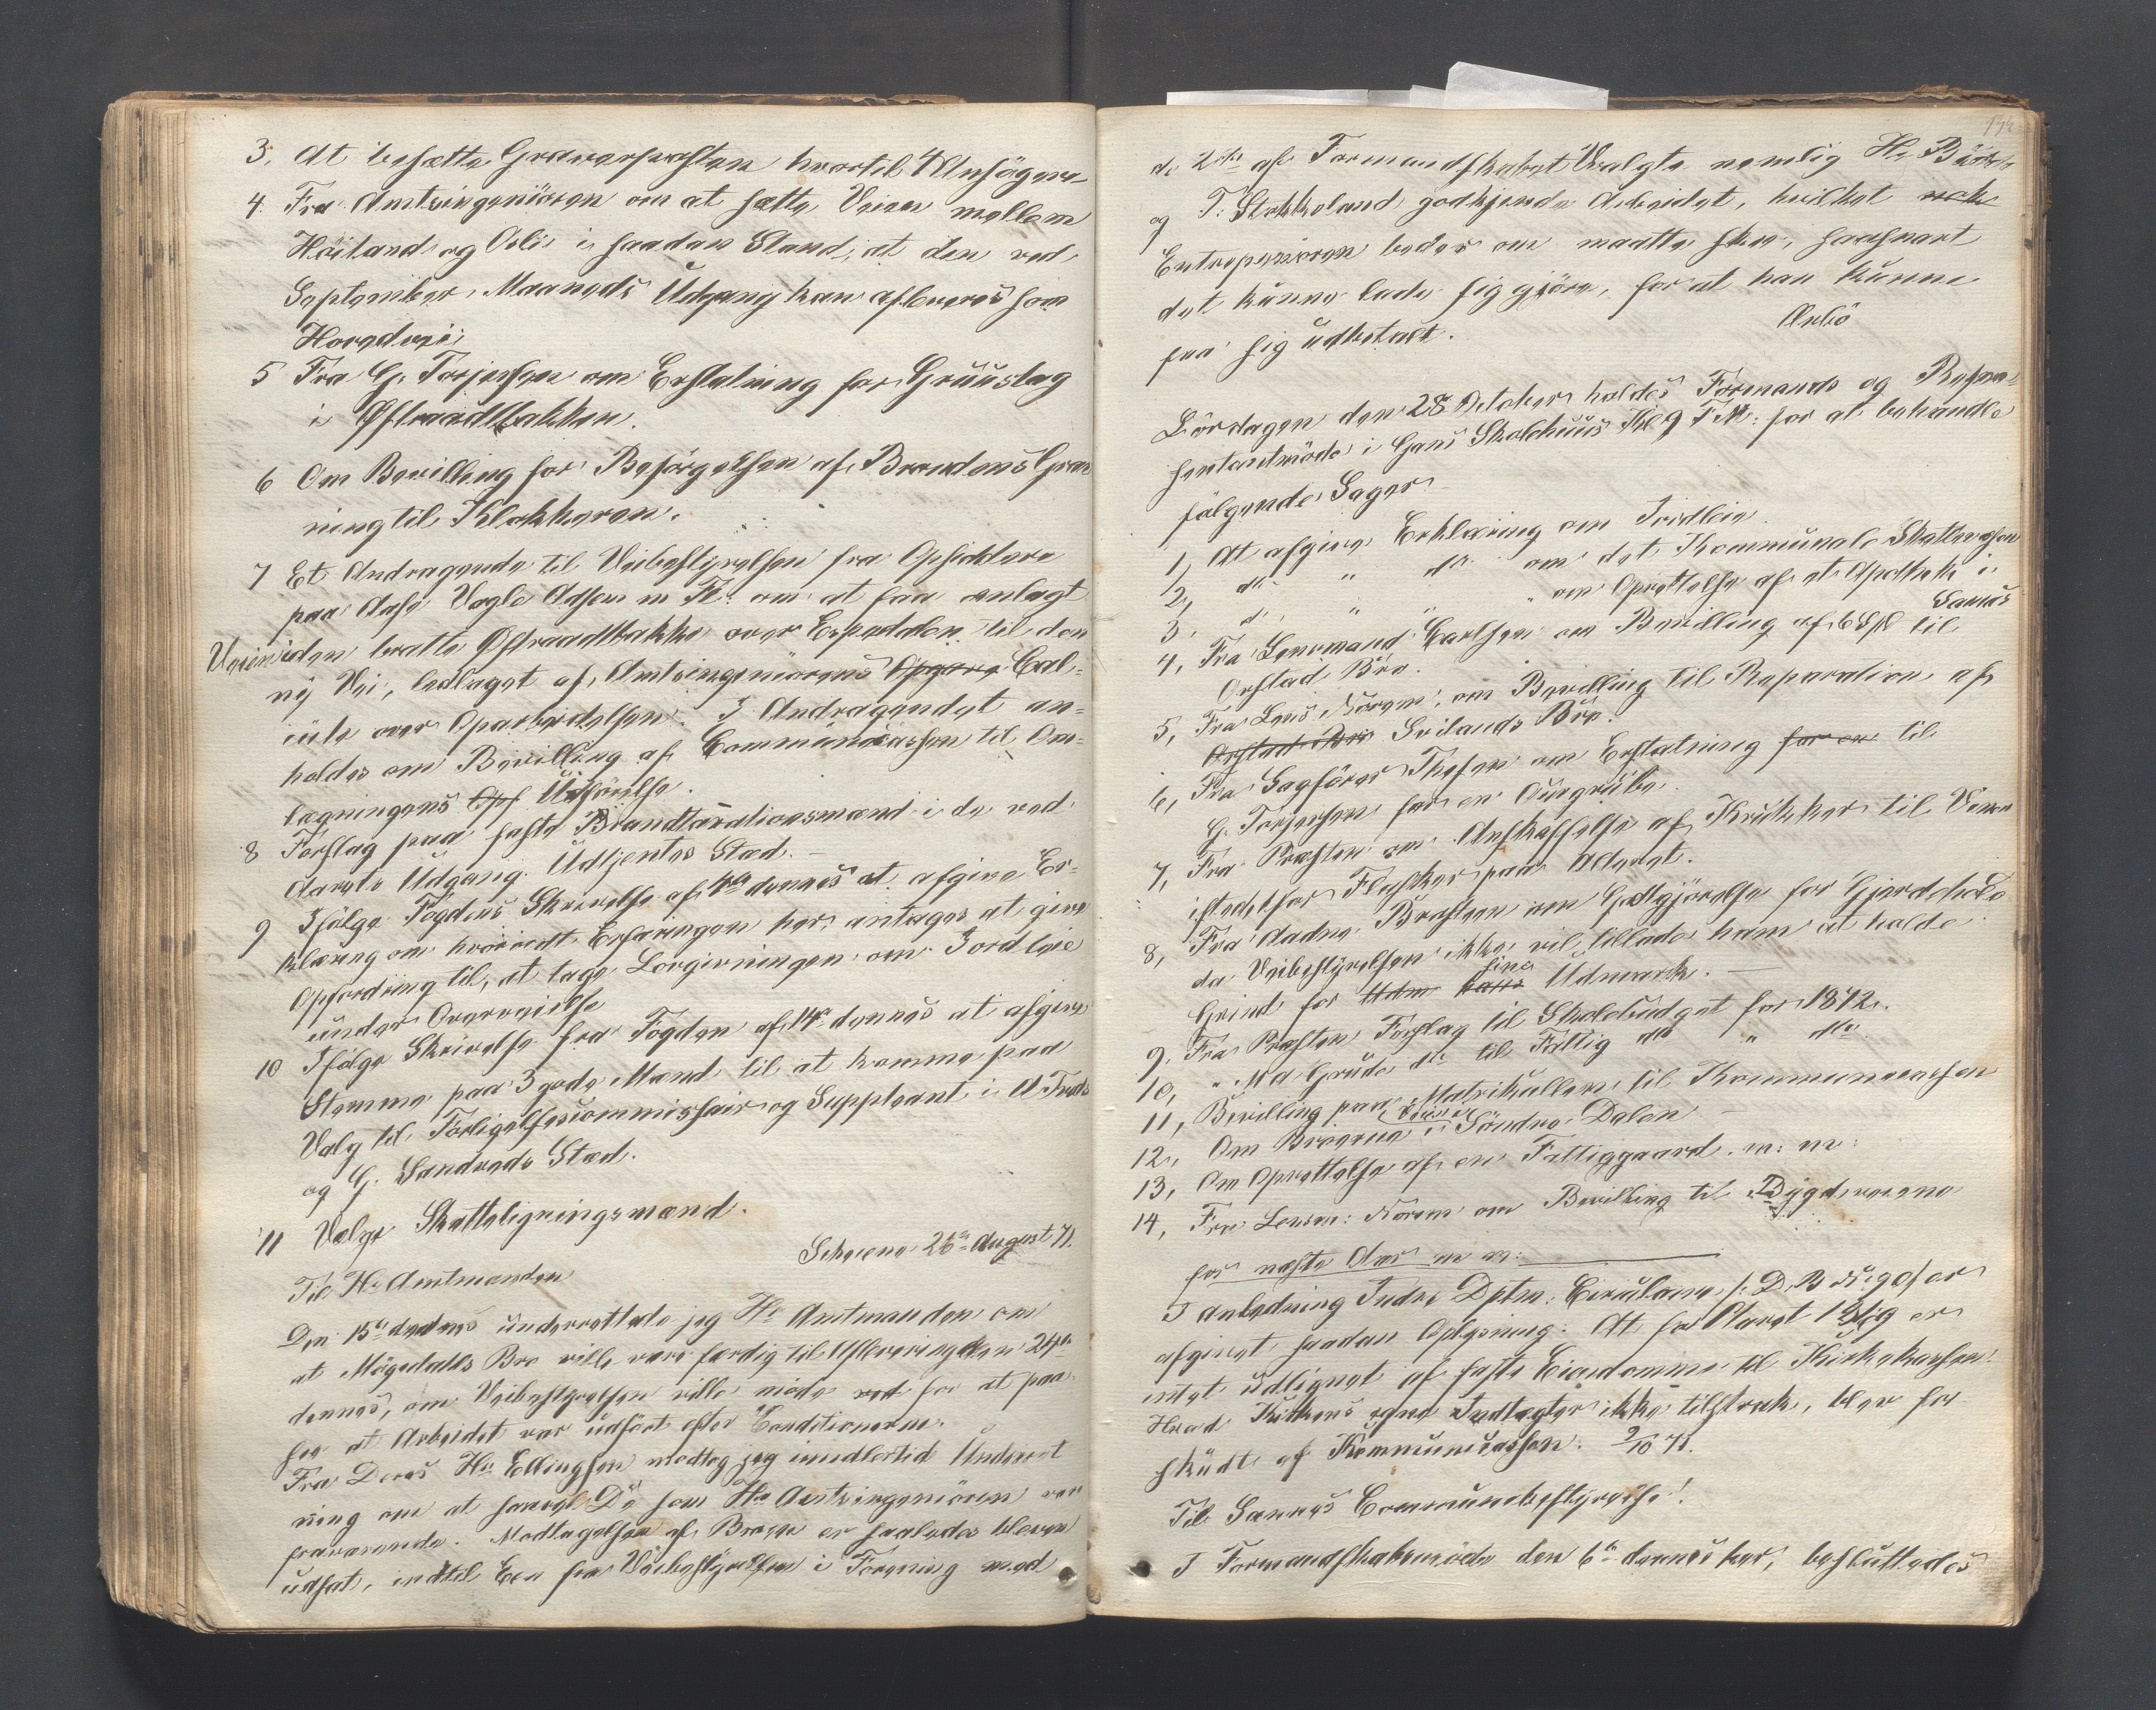 3. At besætte Graverposten hvortil 4 Ansøgere
4. Fra Amtsingeniøren om at sætte Veien mellem
Høiland og Oslie i saadan Stand, at den ved
September Maaneds Udgang kan afleveres som
Hovedvei.
5 Fra G. Torjersen om Erstatning for Gruustag
i Østraadtbakken.
6 Om Bevilling for Besørgelsen af Brandens
ring til Klokkeren.
7 Et Andragende til Veibestyrelsen fra Opsiddere
paa Aase Vogle Adsen m Fl: om at faa anlagt
Veien i den bratte Østraadtbakke over Espedalen til den
ny Vei, ledsaget af Amtsingeniørens Opgave Cal-
cule over Oparbeidelsen. I Andragendet an-
holdes om Bevilling af Communecassen til Om-
lægningens Opf Udførelse.
8 Forslag paa faste Brandtaxationsmænd i de ved
Aarets Udgang Udtjentes Sted. –
9 Ifølge Fogdens Skrivelse af 4de dennes at afgive Er-
klæring om hvorvidt Erfaringen her antages at give
Opfordring til, at tage Lovgivningen om Jordleie
under Overveielse
10 Ifølge Skrivelse fra Fogden af 14de dennes at afgive
Stemme paa 3 gode Mænd til at komme paa
Valg til Forligelsescommissair og Suppleant i A Treds
og G. Sandveds Sted.
11 Valge Skatteligningsmænd.
Scheiene 26de August 71.
Til Hr Amtmanden
Den 15de dennes underrettede jeg Hr Amtmanden om
at Møgedalls Bro ville være færdig til Aflevering den 24de
dennes, om Veibestyrelsen ville møde ved for at paa-
see at Arbeidet var udført efter Conditionerne.
Fra Deres Hr Ellingsen modtog jeg imidlertid Underret
ning om at saavel De som Hr Amtsingeniøren var
fraværende. Modtagelsen af Broen er saaledes bleven
udsat, indtil Een fra Veibestyrelsen i Forening med
de 2de af Formandskabet Valgte nemlig H.
og T. Stokkeland godkjende Arbeidet, hvilket
Entreprenøren beder om maatte skee, saasnart
det kunne lade sig gjøre, for at han kunne
faa sig udbetalt.
Aubø
Lørdagen den 28 October holdes Formands og Repræ-
sentantmøde i Gans Skolehuus Kl 9 F M: for at behandle
følgende Sager
1, At afgive Erklæring om Jordleie
2, do " do om det Kommunale Skattevæsen
3, do " " " om Oprettelse af et Apothek i
Sannæs
4, Fra Lensmand Carlsen om Bevilling af 6 Spd til
Orstad Bro.
5, Fra Lens Norem, om Bevilling til Reparation af
Orstad Bro Svilands Bro.
6, Fra Sagfører Thesen om Erstatning for en til
G. Torjersen for en Ourgrube.
7, Fra Præsten om Anskaffelse af Krukker til Vinen
istedetfor Flasker paa Alteret.
8, Fra Aadne Braasteen om Godtgjørelse for Gjerdehold
da Veibestyrelsen ikke vil tillade ham at holde
Grind for Udm hans sine Udmark. –
9. Fra Præsten Forslag til Skolebudget for 1872.
10, " M A Grude do til Fattig do " do
11, Bevilling paa Matrikullen til Kommunecassen
12, Om Broerne i Søndre Dalen –
13, Om Oprettelse af en Fattiggaard. m: m:
14, Fra Lensm: Norem om Bevilling til Bygdeveiene
for næste Aar m m:
I anledning Indre Dptm: Circulaire er
afgivet saadan Oplysning: At for Aaret er
intet udlignet af faste Eiendomme til Kirkekassen.
Hvad Kirkens egne Indtægter ikke tilstrak, blev for
skudt af Kommunecassen. 9/10 71.
Til Sannæs Communebestyrelse!
I Formandskabsmøde den 6te dennes her, besluttedes